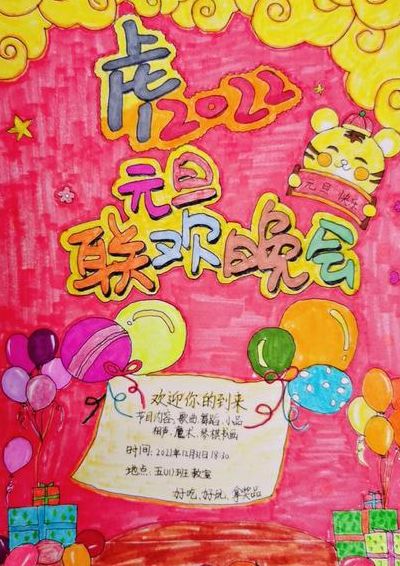 虎2022
元旦快乐
元旦
联欢晚会
欢迎你的到来
节目内容、歌曲舞蹈、小品
相声、魔术、琴棋书画
时间:2021年12月31日18:30
地点、五(1)班教室
好吃、好玩、拿奖品